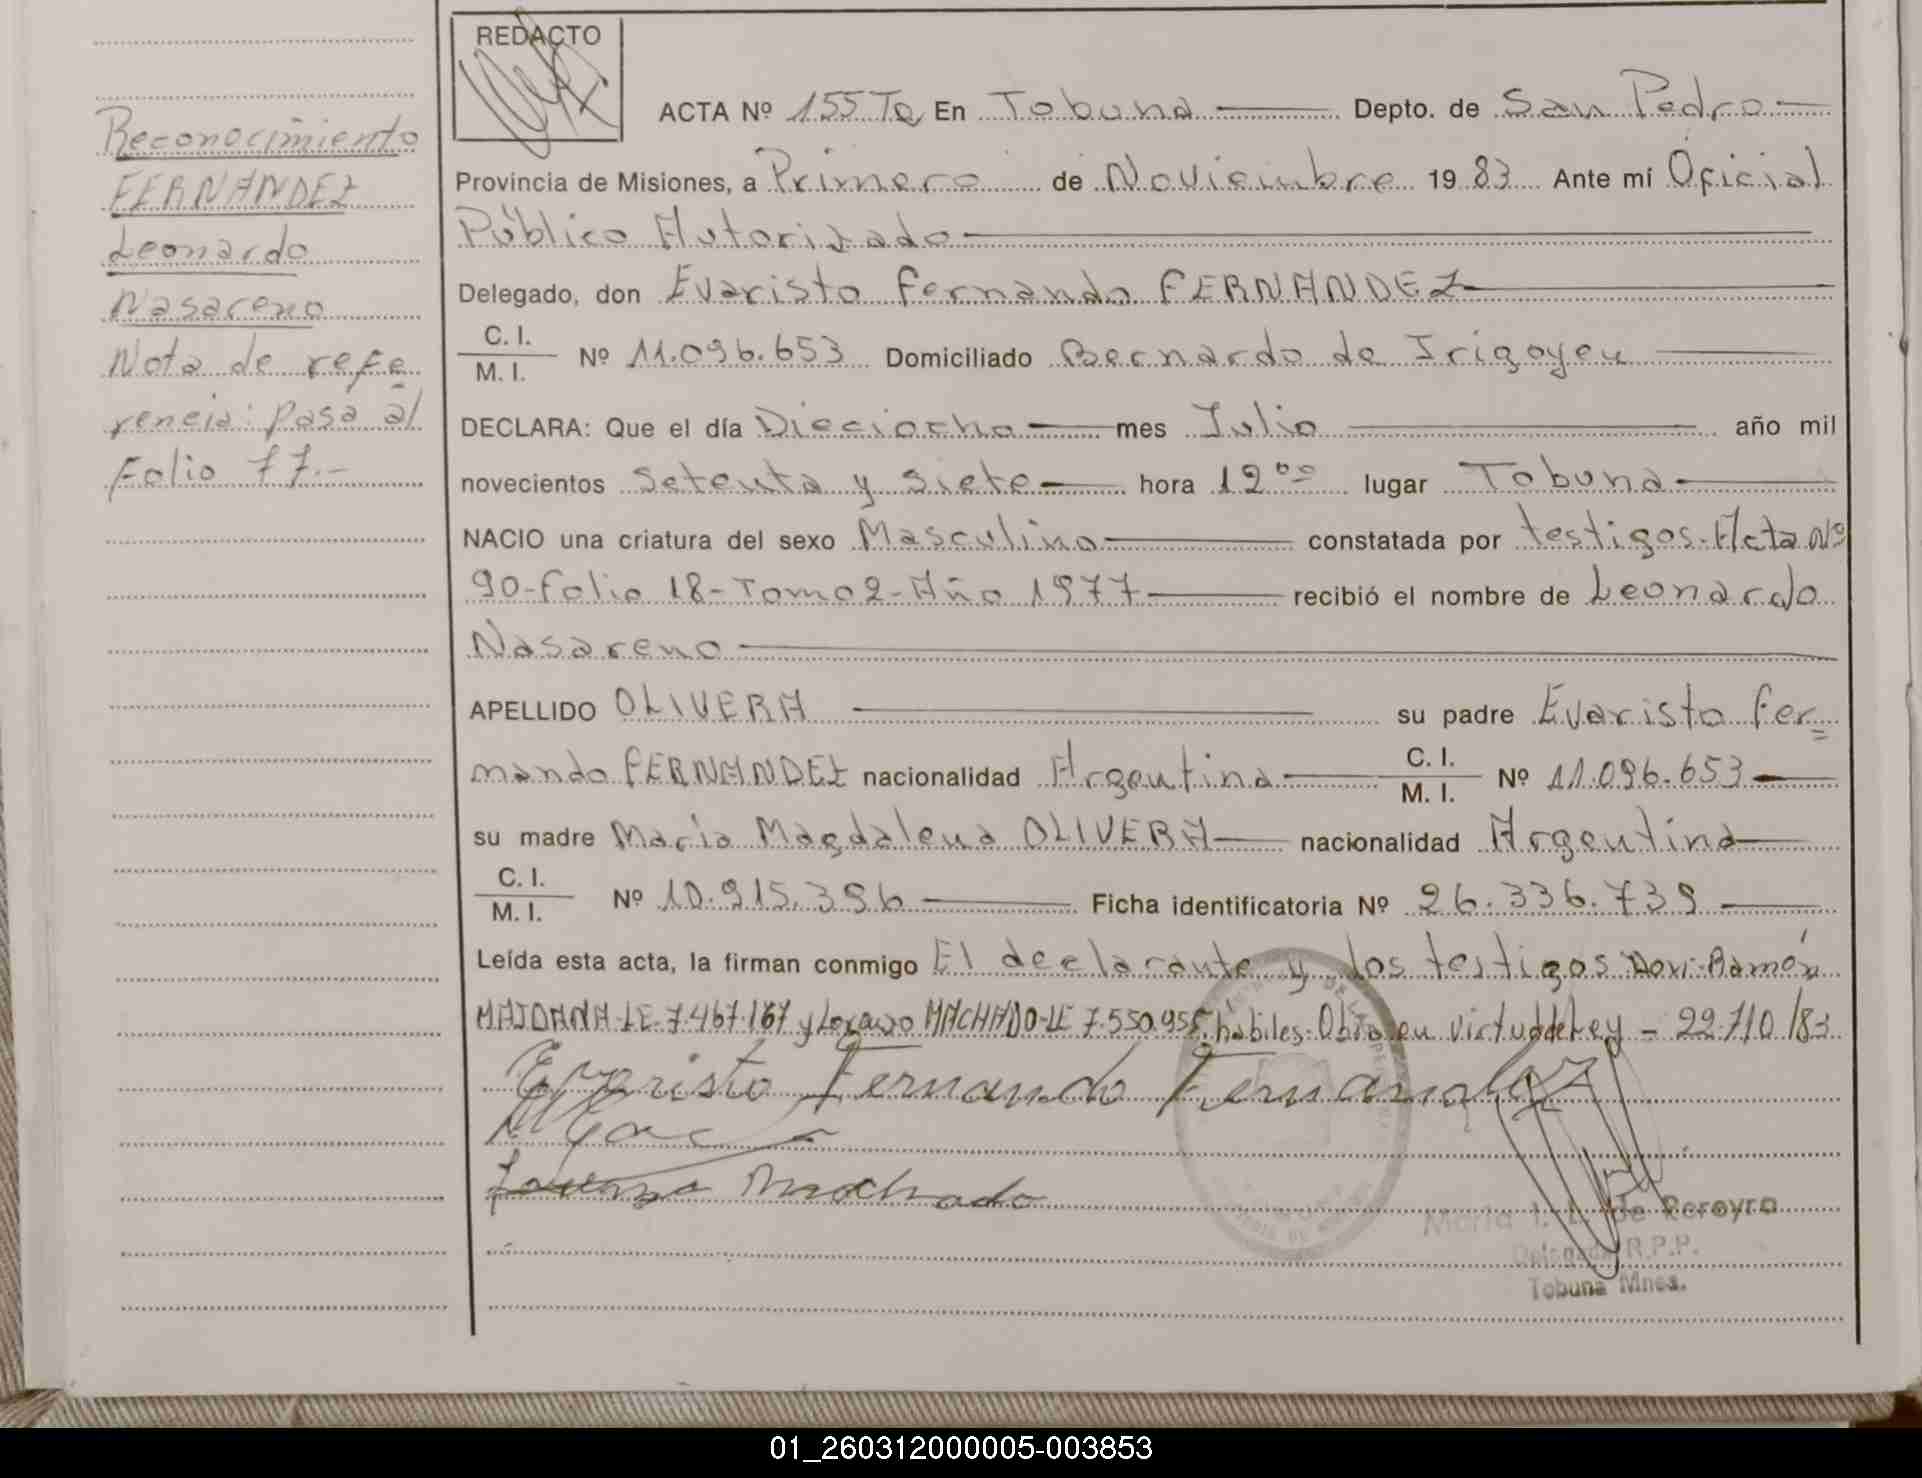 Reconocimiento
FERNANDEZ
Leonardo
Nasareno
Nota de refe
rencia: pasa al
Folio 77.-
REDACTO
ACTA Nº 155 Tº En Tobuna Depto. de San Pedro
Provincia de Misiones, a Primero de Noviembre 19 83 Ante mí Oficial
Público Autorizado
Delegado, don Evaristo Fernando FERNANDEZ
C. I.
M. I. Nº 11.096.653 Domiciliado Bernardo de Irigoyen
DECLARA: Que el día Dieciocho mes Julio año mil
novecientos Setenta y siete hora 12⁰⁰ lugar Tobuna
NACIO una criatura del sexo Masculino constatada por testigos-Acta Nº
90-Folio 18-Tomo 2-Año 1977 recibió el nombre de Leonardo
Nasareno
APELLIDO OLIVERA su padre Evaristo Fer
nando FERNANDEZ nacionalidad Argentina C. I.
M. I. Nº 11.096.653
su madre María Magdalena OLIVERA nacionalidad Argentina
C. I.
M. I. Nº 10.915.396 Ficha identificatoria Nº 26.336.739
Leída esta acta, la firman conmigo El declarante y los testigos Ramón
LE. 7.467.167 y Lorenzo MACHADO-LE 7.550.955, habiles. Obra en virtud de Ley - 22.710/83
Evaristo Fernando Fernandez
Lorenzo Machado
María I. L. de Pereyra
Delegada R.P.P.
Tobuna Mnes.
01_260312000005-003853